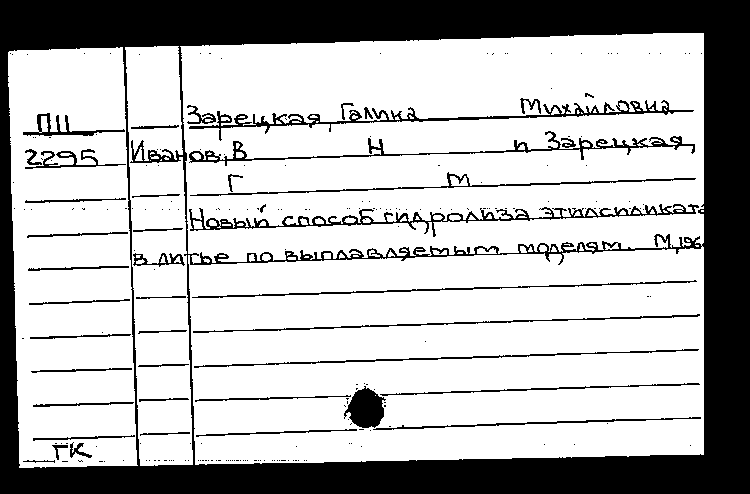 Зарецкая, Галина Михайловна
П11
2295 Иванов, В Н и Зарецкая,
Г М
Новый способ гидролиза этилсиликата
в литье по выплавляемым моделям. М, 196
ГК